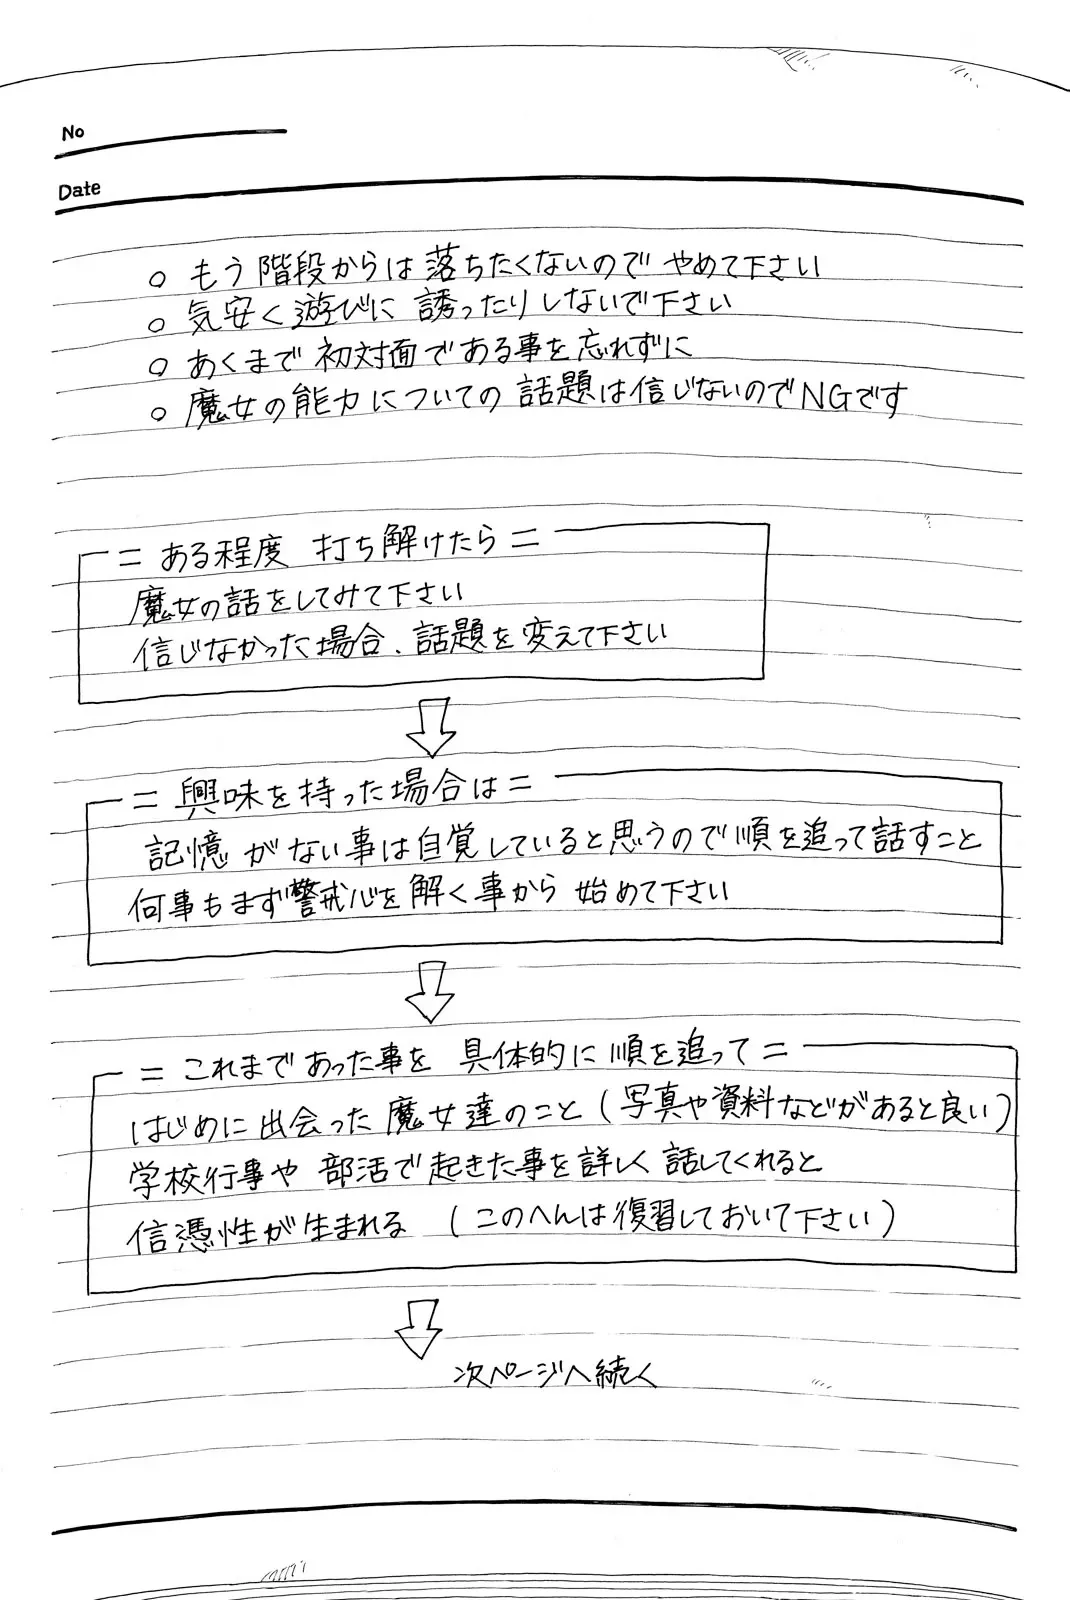 No
Date
○ もう階段からは落ちたくないのでやめて下さい
○ 気安く遊びに誘ったりしないで下さい
○ あくまで初対面である事を忘れずに
○ 魔女の能力についての話題は信じないのでNGです
= ある程度 打ち解けたら =
魔女の話をしてみて下さい
信じなかった場合、話題を変えて下さい
= 興味を持った場合は =
記憶がない事は自覚していると思うので順を追って話すこと
何事もまず警戒心を解く事から始めて下さい
= これまであった事を 具体的に順を追って =
はじめに出会った魔女達のこと(写真や資料などがあると良い)
学校行事や部活で起きた事を詳しく話してくれると
信憑性が生まれる (このへんは復習しておいて下さい)
次ページへ続く